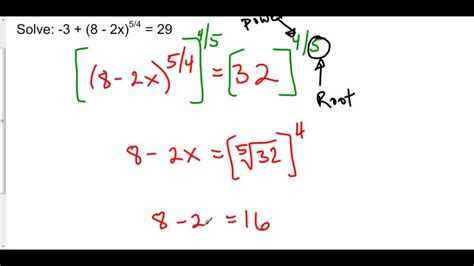 Solve: -3 + (8 - 2x)^{5/4} = 29
power
[(8 - 2x)^{5/4}]^{4/5} = [32]^{4/5}
Root
8 - 2x = [\sqrt[5]{32}]^4
8 - 2 = 16